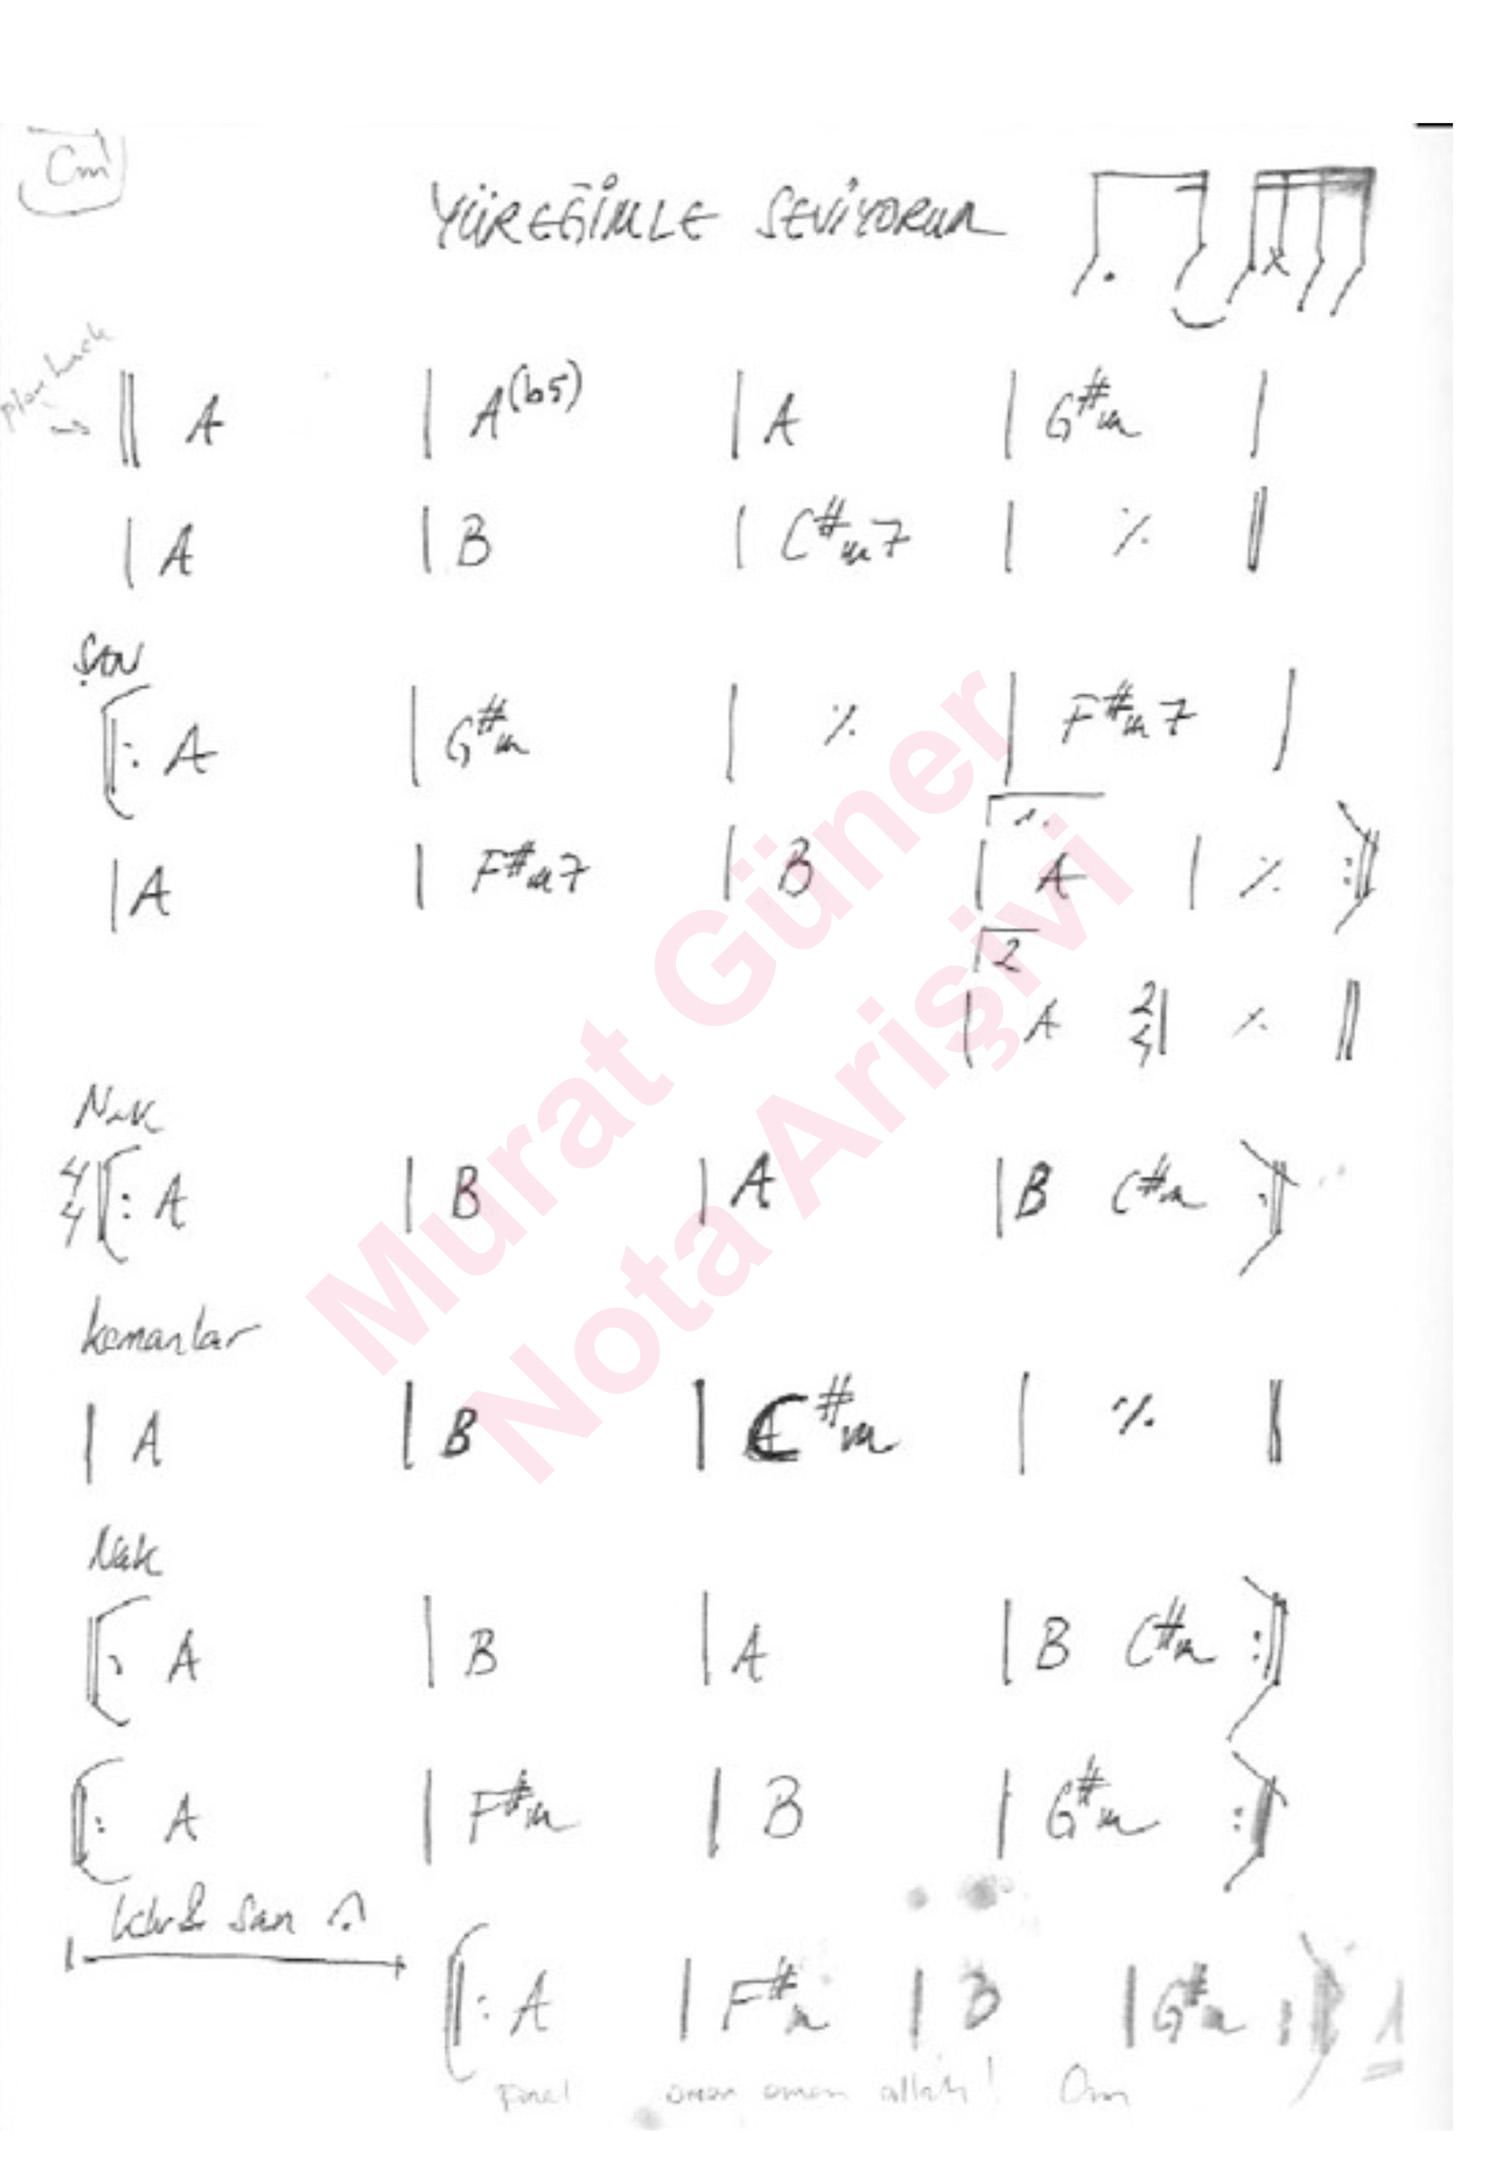 Cm
YÜREĞİMLE SEVİYORUM
play back
|| A | A(b5) | A | G#m |
| A | B | C#m7 | ٪ ||
ŞAN
||: A | G#m | ٪ | F#m7 |
| A | F#m7 | B | 1. A | ٪ :||
2
| A 2/4 | ٪ ||
Nak
4/4 ||: A | B | A | B C#m :||
kemanlar
| A | B | C#m | ٪ ||
Nak
||: A | B | A | B C#m :||
||: A | F#m | B | G#m :||
San
||: A | F#m | B | G#m :|| 1
Final aman aman allah!
Murat Güner
Nota Arişivi